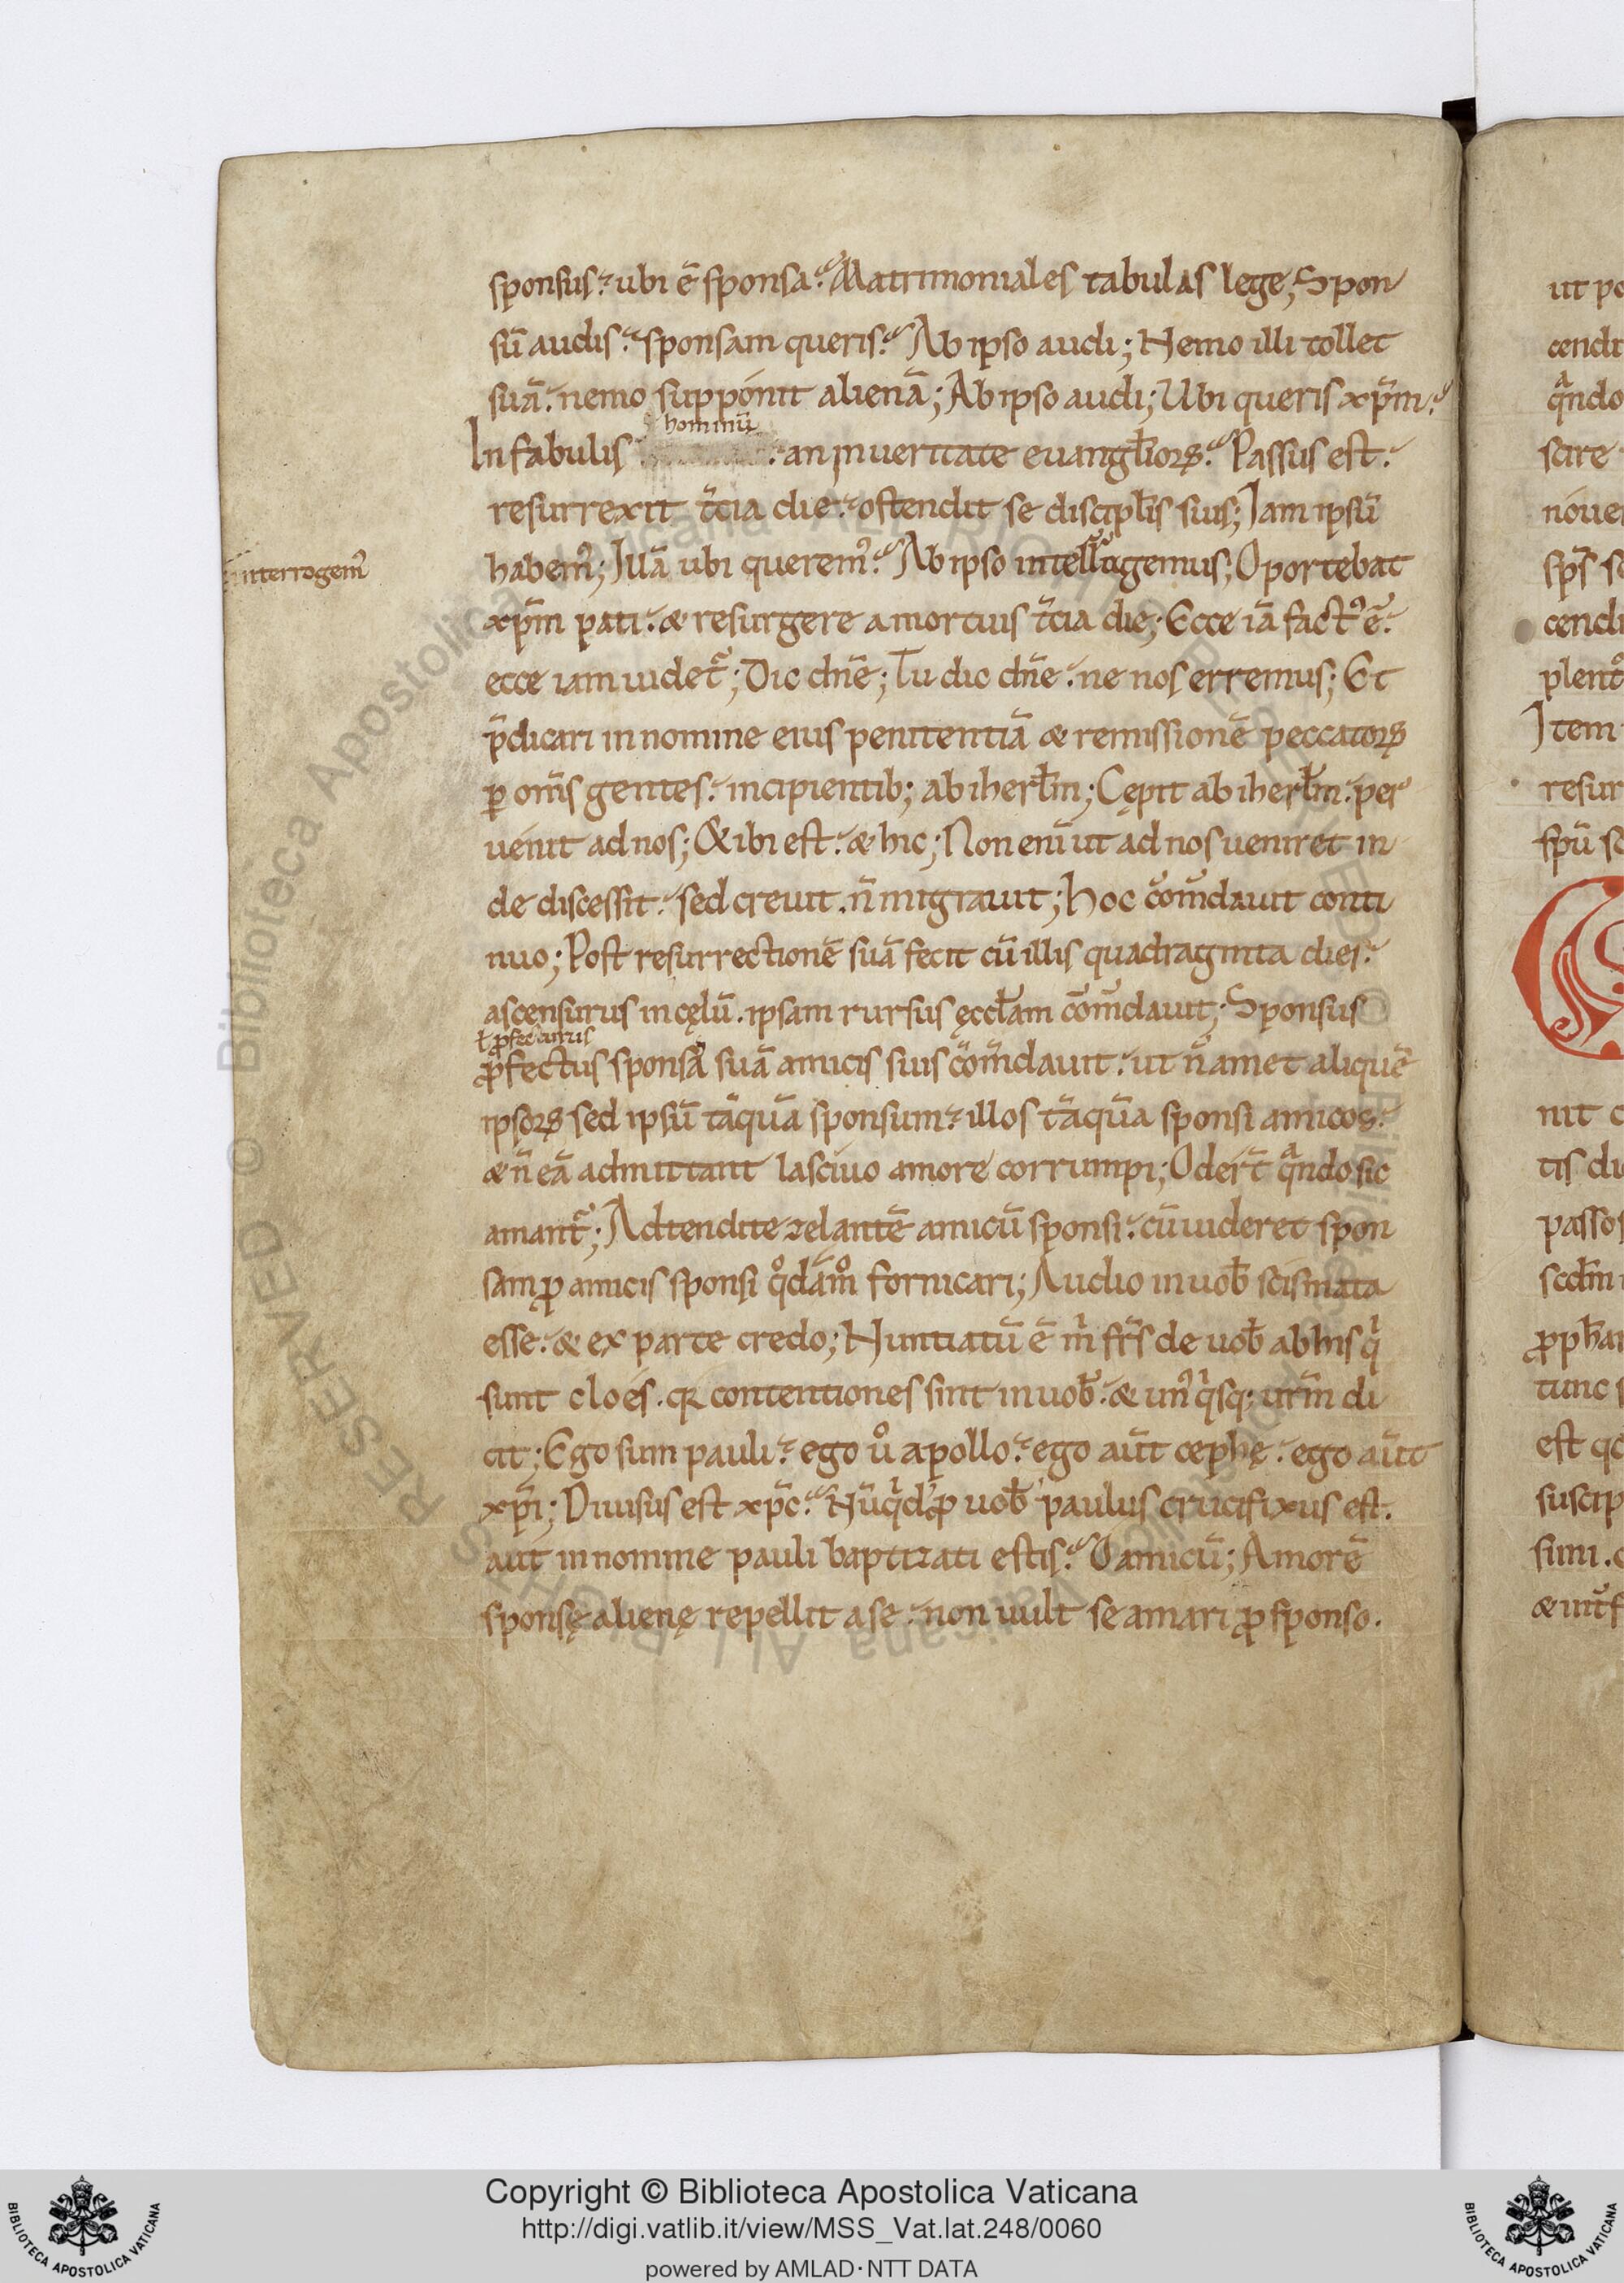 sponsus. ubi ē sponsa. Matrimoniales tabulas lege; Spon
sū audis. sponsam queris. Ab ipso audi; Nemo illi tollet
suā. nemo supponit alienā; Ab ipso audi; Ubi queris xp̄m.
hominū
In fabulis . an in ueritate euangl̄ioꝝ. Passus est.
resurrexit t̄cia die. ostendit se discipl̄is suis; Iam ipsū
interrogem᾽
habem᾽; Illā ubi querem᾽. Ab ipso intelligemus; Oportebat
xp̄m pati. & resurgere a mortuis t̄cia die; Ecce iā fact᾽ ē.
ecce iam uidet᷑; Dic dn̄e; Tu dic dn̄e. ne nos erremus; Et
p̄dicari in nomine eius penitentiā & remissionē peccatoꝝ
ꝑ om̄s gentes. incipientib; ab iherl̄m; Cępit ab iherl̄m. per
uenit ad nos; & ibi est. & hic; Non enī ut ad nos ueniret in
de discessit. sed creuit. n̄ migrauit; Hoc com̄dauit conti
nuo; Post resurrectionē suā fecit cū illis quadraginta dies.
ascensurus in cęlū. ipsam rursus ęccl̄am com̄dauit; Sponsus
ł ꝓfecturus
ꝓfectus sponsā suā amicis suis com̄dauit. ut n̄ amet aliquē
ipsoꝝ sed ipsū tāquā sponsum. illos tāquā sponsi amicos.
& n̄ eā admittant lasciuo amore corrumpi; Oder̄t qͣndo sic
amant᷑; Adtendite zelantē amicū sponsi. cū uideret spon
sam ꝓ amicis sponsi qͦdā mͦ fornicari; Audio in uob̄ scismata
esse. & ex parte credo; Nuntiatū ē mͥ fr̄s de uob̄ ab his qͥ
sunt cloes. quia contentiones sint in uob̄. & un᾽qͥsq; ur̄m di
cit; Ego sum pauli. ego uͦ apollo. ego aut̄ cephę. ego aut̄
xp̄i; Diuisus est xp̄c. Nūqͥd ꝓ uob̄ paulus crucifixus est.
aut in nomine pauli baptizati estis. O amicū; Amorē
sponsę alienę repellit a se. non uult se amari ꝓ sponso.
Copyright © Biblioteca Apostolica Vaticana
http://digi.vatlib.it/view/MSS_Vat.lat.248/0060
powered by AMLAD·NTT DATA